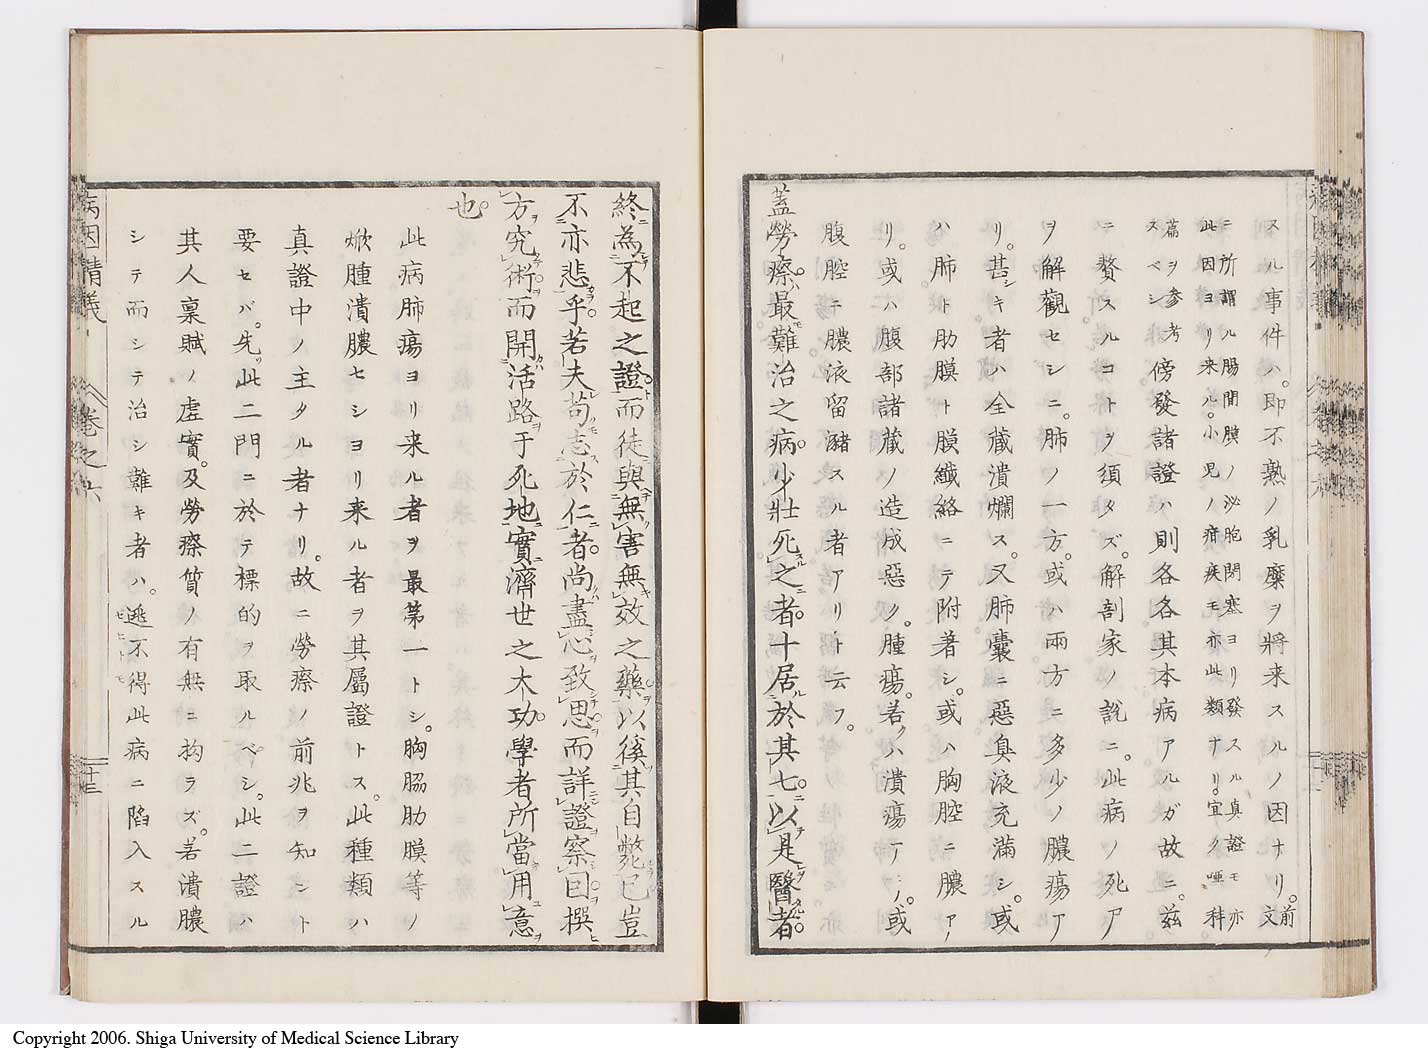 スル事件ハ。即不熟ノ乳糜ヲ將来スルノ因ナリ。前文
ニ所謂ル腸間膜ノ泌胞閉塞ヨリ發スル真證モ亦
此因ヨリ来ル。小児ノ疳疾モ亦此類ナリ。宜ク唖科
篇ヲ参考
スベシ
傍發諸證ハ則各各其本病アルガ故ニ。茲
ニ贅スルコトヲ須タズ。解剖家ノ説ニ。此病ノ死尸
ヲ解觀セシニ。肺ノ一方。或ハ兩方ニ多少ノ膿瘍ア
リ。甚シキ者ハ全藏潰爛ス。又肺嚢ニ惡臭液充滿シ。或
ハ肺ト肋膜ト膜纖絡ニテ附著シ。或ハ胸腔ニ膿アリ
リ。或ハ腹部諸藏ノ造成惡ク。腫瘍。若クハ潰瘍アリ。或
腹腔ニ膿液留瀦スル者アリト云フ。
蓋勞瘵。最難治之病。少壯死之者。十居於其七。以是醫者
終為不起之證。而徒與無害無效之藥。以徯其自斃已。豈
不亦悲乎。若夫苟志於仁者。尚盡心致思。而詳證察因。撰
方究術。而開活路于死地。實濟世之大功。學者所當用意
也。
此病肺瘍ヨリ来ル者ヲ最第一トシ。胸脇肋膜等ノ
焮腫潰膿セシヨリ来ル者ヲ其屬證トス。此種類ハ
真證中ノ主タル者ナリ。故ニ勞瘵ノ前兆ヲ知ント
要セバ。先此二門ニ於テ標的ヲ取ルベシ。此二證ハ
其人稟賦ノ虚實。及勞瘵質ノ有無ニ拘ラズ。若潰膿
シテ而シテ治シ難キ者ハ。遁不得此病ニ陷入スル
病因精義
巻之六
十三
Copyright 2006. Shiga University of Medical Science Library